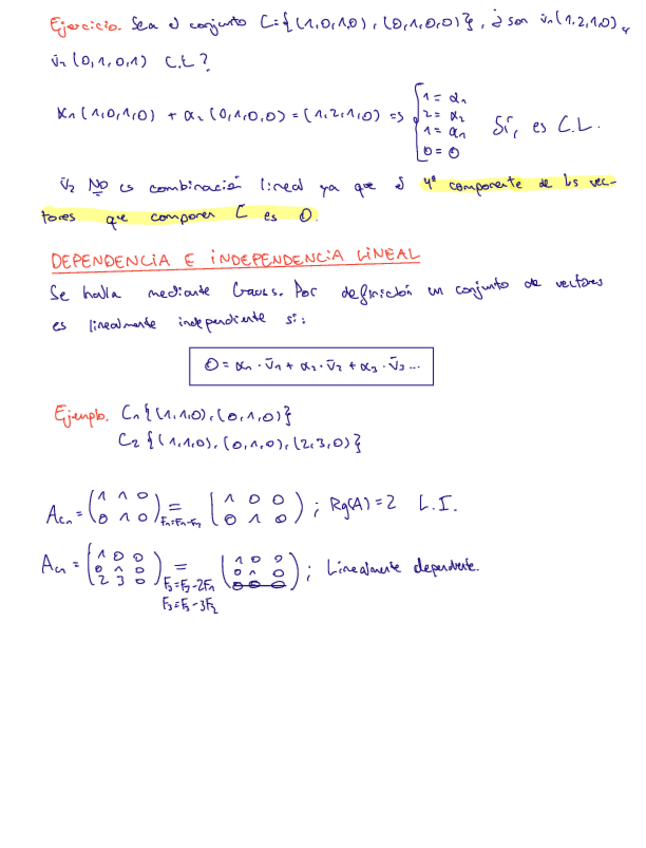 Ejercicio. Sea el conjunto C={(1,0,1,0), (0,1,0,0)}, ¿ son v̄₁(1,2,1,0) y
v̄₁(0,1,0,1) C.L?
α₁(1,0,1,0) + α₂(0,1,0,0)=(1,2,1,0) => { 1=α₁ Sí, es C.L.
2=α₂
1=α₁
0=0
v̄₂ NO es combinación lineal ya que el 4ª componente de los vec-
tores que componen C es 0.
DEPENDENCIA E INDEPENDENCIA LINEAL
Se halla mediante Gauss. Por definición un conjunto de vectores
es linealmente independiente si:
0=α₁·v̄₁+α₂·v̄₂+α₃·v̄₃...
Ejemplo. C₁{(1,1,0),(0,1,0)}
C₂{(1,1,0),(0,1,0),(2,3,0)}
A_C₁=(1 1 0 / 0 1 0) = F₁=F₁-F₂ (1 0 0 / 0 1 0); Rg(A)=2 L.I.
A_C₂=(1 0 0 / 0 1 0 / 2 3 0) = F₃=F₃-2F₁ (1 0 0 / 0 1 0 / 0 0 0); Linealmente dependiente.
F₃=F₃-3F₂